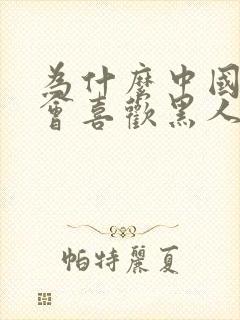 為什麼中國
會喜歡黑人
帕特麗夏